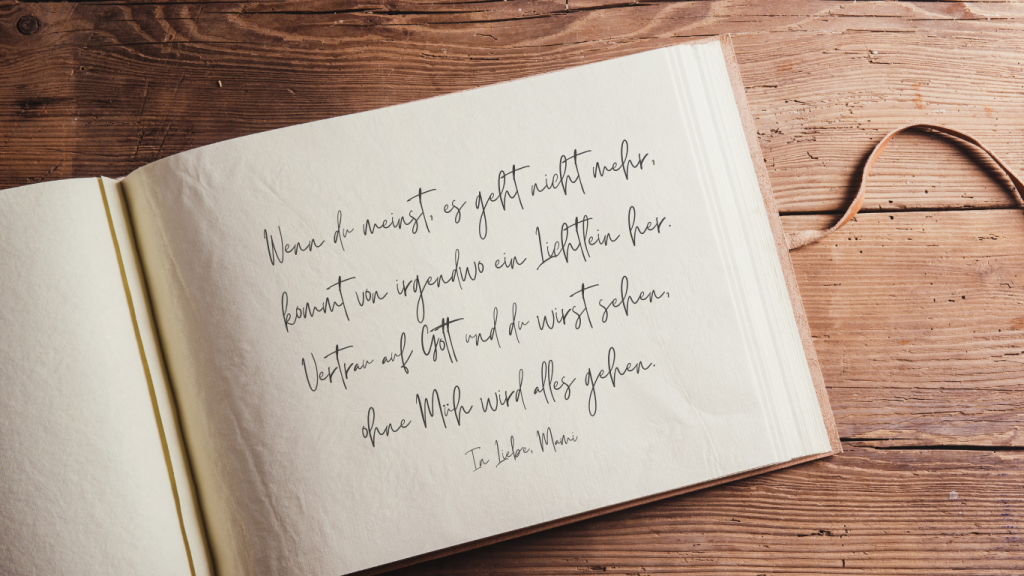 Wenn du meinst, es geht nicht mehr,
kommt von irgendwo ein Lichtlein her.
Vertrau auf Gott und du wirst sehen,
ohne Müh wird alles gehen.
In Liebe, Mami